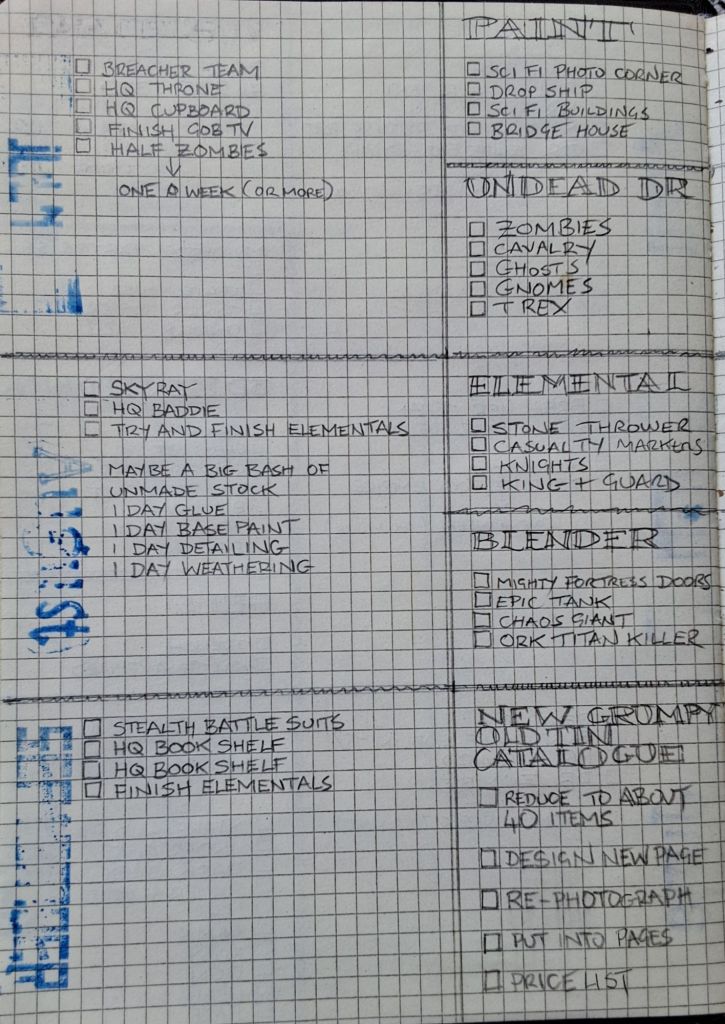 BREACHER TEAM
HQ THRONE
HQ CUPBOARD
FINISH GOBTV
HALF ZOMBIES
ONE A WEEK (OR MORE)
SKYRAY
HQ BADDIE
TRY AND FINISH ELEMENTALS
MAYBE A BIG BASH OF
UNMADE STOCK
1 DAY GLUE
1 DAY BASE PAINT
1 DAY DETAILING
1 DAY WEATHERING
STEALTH BATTLE SUITS
HQ BOOK SHELF
HQ BOOK SHELF
FINISH ELEMENTALS
PAINT
SCI FI PHOTO CORNER
DROP SHIP
SCI FI BUILDINGS
BRIDGE HOUSE
UNDEAD DR
ZOMBIES
CAVALRY
GHOSTS
GNOMES
T REX
ELEMENTAL
STONE THROWER
CASUALTY MARKERS
KNIGHTS
KING + GUARD
BLENDER
MIGHTY FORTRESS DOORS
EPIC TANK
CHAOS GIANT
ORK TITAN KILLER
NEW GRUMPY
OLD TIN
CATALOGUE
REDUCE TO ABOUT
40 ITEMS
DESIGN NEW PAGE
RE-PHOTOGRAPH
PUT INTO PAGES
PRICE LIST